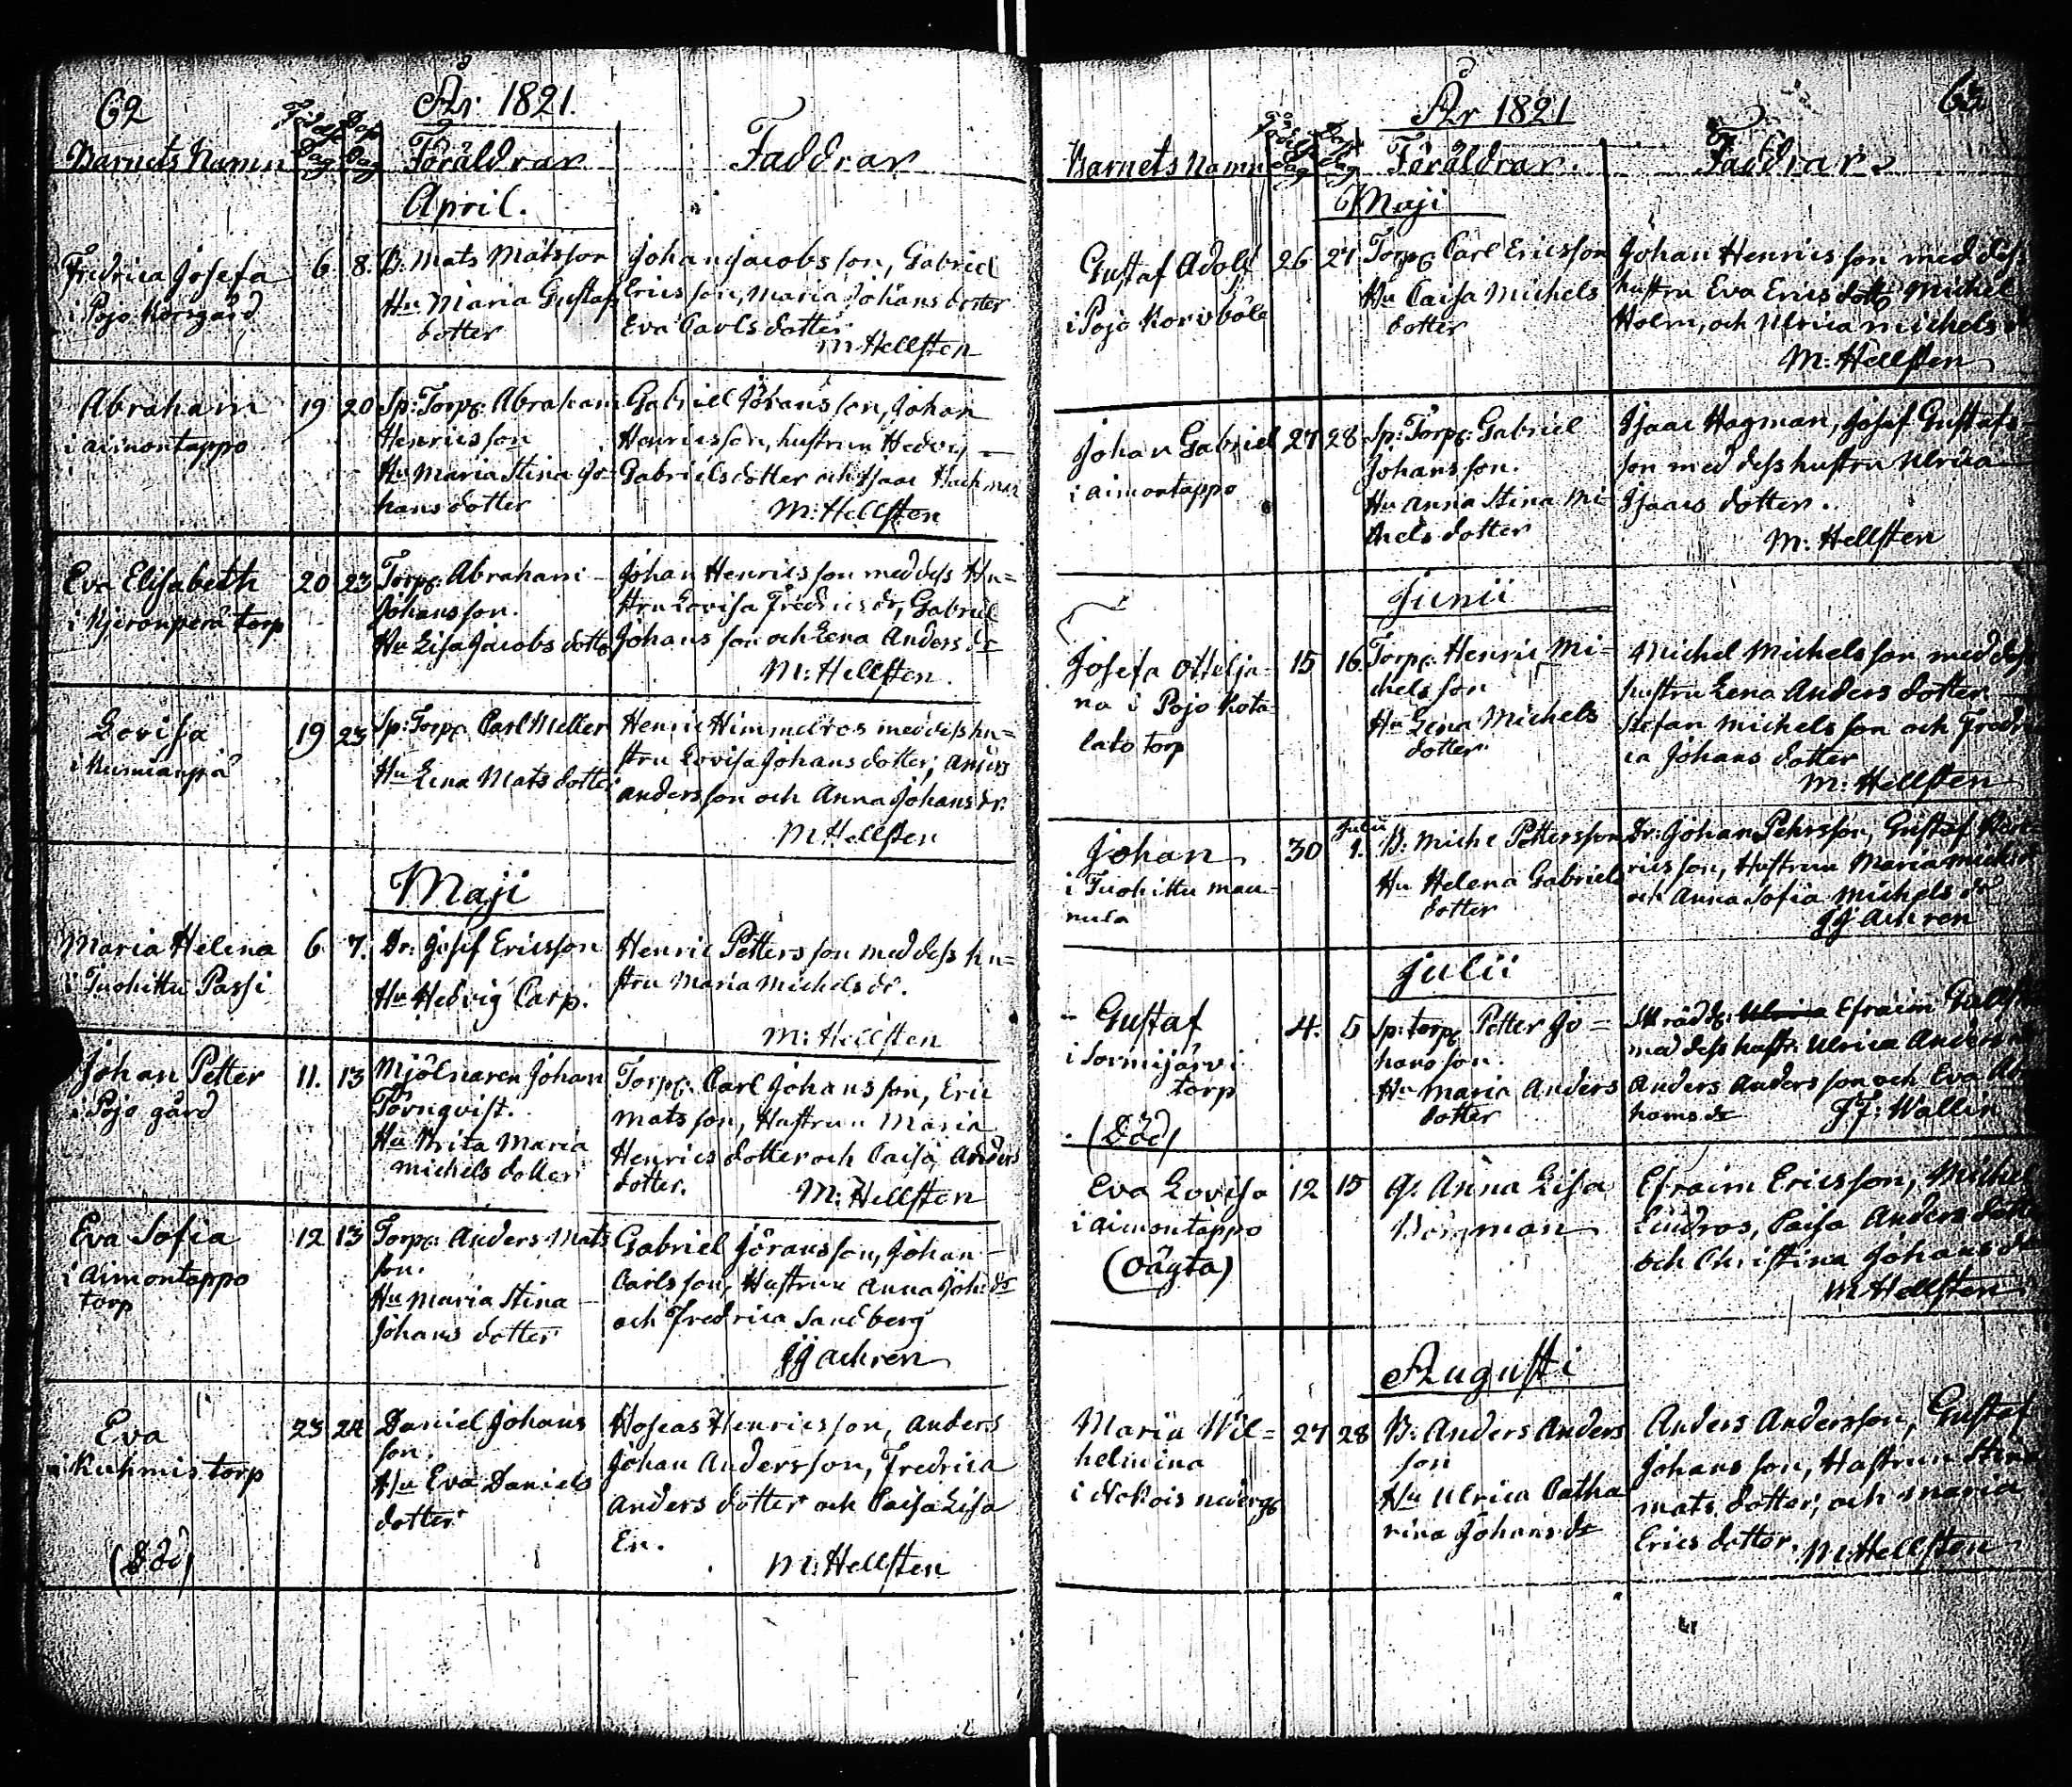 62
År 1821.
Barnets Namn
Födelse Dag
Dop Dag
Föräldrar
Faddrar
April.
Fredrica Josefa
i Pojo Korsgård
6
8.
B: Mats Matsson
Hu Maria Gustafs
dotter
Johan Jacobsson, Gabriel
Ericsson, Maria Johans dotter
Eva Carlsdotter
M: Hellsten
Abraham
i aimontappo
19
20
Sp: Torp: Abraham
Henricsson
Hu Maria Stina Jo-
hans dotter
Gabriel Johansson, Johan
Henricsson, hustrun Hedvig
Gabrielsdotter och Isaac
M: Hellsten
Eva Elisabeth
torp
20
23
Torp: Abraham
Johansson.
Hu Lisa Jacobs dotter
Johan Henricsson med dess Hu=
stru Lovisa Fredricsdr, Gabriel
Johansson och Lena Anders dr
M: Hellsten.
Lovisa
19
23
Sp: Torp: Carl Meller
Hu Lena Mats dotter
Henric Himmelros med dess hu=
stru Lovisa Johansdotter; Anders
andersson och Anna Johansdr.
M Hellsten
Maji
Maria Helena
i Tuohittu Passi
6
7.
Dr: Josef Ericsson
Hu Hedvig Carp.
Henric Pettersson med dess hu=
stru Maria Michelsdr.
M: Hellsten
Johan Petter
i Pojo gård
11.
13
Mjölnaren Johan
Törnqvist.
Hu Brita Maria
Michels dotter
Torp: Carl Johansson, Eric
Matsson, Hustrun Maria
Henrics dotter och Caisa Anders
dotter.
M: Hellsten
Eva Sofia
i Aimontappo
torp
12
13
Torp: Anders Mats
son.
Hu Maria Stina
Johans dotter
Gabriel Göransson, Johan
Carlsson, Hustrun Anna Joh: dr
och Fredrica Sandberg
JJ Achren
Eva
i Kuhmis torp
(Död)
23
24
Daniel Johans
son.
Hu Eva Daniels
dotter
Hoseas Henricsson, Anders
Johan Andersson, Fredrica
Anders dotter och Caisa Lisa
En.
M: Hellsten
63
År 1821
Barnets Namn
Födelse Dag
Dop Dag
Föräldrar.
Faddrar
Maji
Gustaf Adolf
i Pojo Korsböle
26
27
Torp: Carl Ericsson
Hu Caisa Michels
dotter
Johan Henricsson med dess
hustru Eva Erics dotter Michel
Holm, och Ulrica Michels dr
M: Hellsten
Johan Gabriel
i aimontappo
27
28
Sp: Torp: Gabriel
Johansson.
Hu Anna Stina Mi
chels dotter
Isaac Hagman, Josef Gustafs-
son med dess hustru Ulrica
Isaacs dotter.
M: Hellsten
Junii
Josefa Ottelja-
na i Pojo Kota
lato torp
15
16
Torp: Henric Mi=
chelsson
Hu Lena Michels
dotter
Michel Michelsson med dess
hustru Lena Anders dotter
Stefan Michelsson och Fredri
ca Johans dotter
M: Hellsten
Johan
i Tuohittu man
nula
30
Julii
1.
B: Miche Pettersson
Hu Helena Gabriels
dotter
Dr: Johan Pehrsson, Gustaf Hen
ricsson, Hustrun Maria
och Anna Sofia Michels dr
JJ Achren
Julii
Gustaf
i Sormijärvi
torp
(Död)
4.
5
Sp: torp: Petter Jo=
hansson.
Hu Maria Anders
dotter
Skrädd: Efraim
med dess hustr: Ulrica Anders
Anders Andersson och Eva Abra
hams dr
JF: Wallin
Eva Lovisa
i aimontappo
(oägta)
12
15
Q: Anna Lisa
Efraim Ericsson, Michel
Lindros, Caisa Anders dotter
och Christina Johans dr
M Hellsten
Augusti
Maria Wil=
helmina
i
27
28
B: Anders Anders
son
Hu Ulrica Catha
rina Johans dr
Anders Andersson, Gustaf
Johansson, Hustrun Stina
Mats dotter, och Maria
Erics dotter.
M: Hellsten